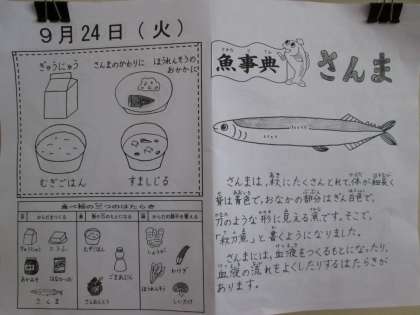 9月24日（火）
ぎゅうにゅう
さんまのかばやに
ほうれんそうの
おかかに
むぎごはん
すましじる
食べ物の三つのはたらき
からだをつくる
熱や力のもとになる
からだの調子を整える
ぎゅうにゅう
とうふ
むぎごはん
しょうが
さんま
さんおんとう
ほうれんそう
しいたけ
魚事典
さんま
さんまは、秋にたくさんとれて、体が細長く
背は青色で、おなかの部分はぎん白色で、
刀のような形に見える魚です。そこで、
「秋刀魚」と書くようになりました。
さんまには、血液をつくるもとになったり、
血液の流れをよくしたりするはたらきが
あります。